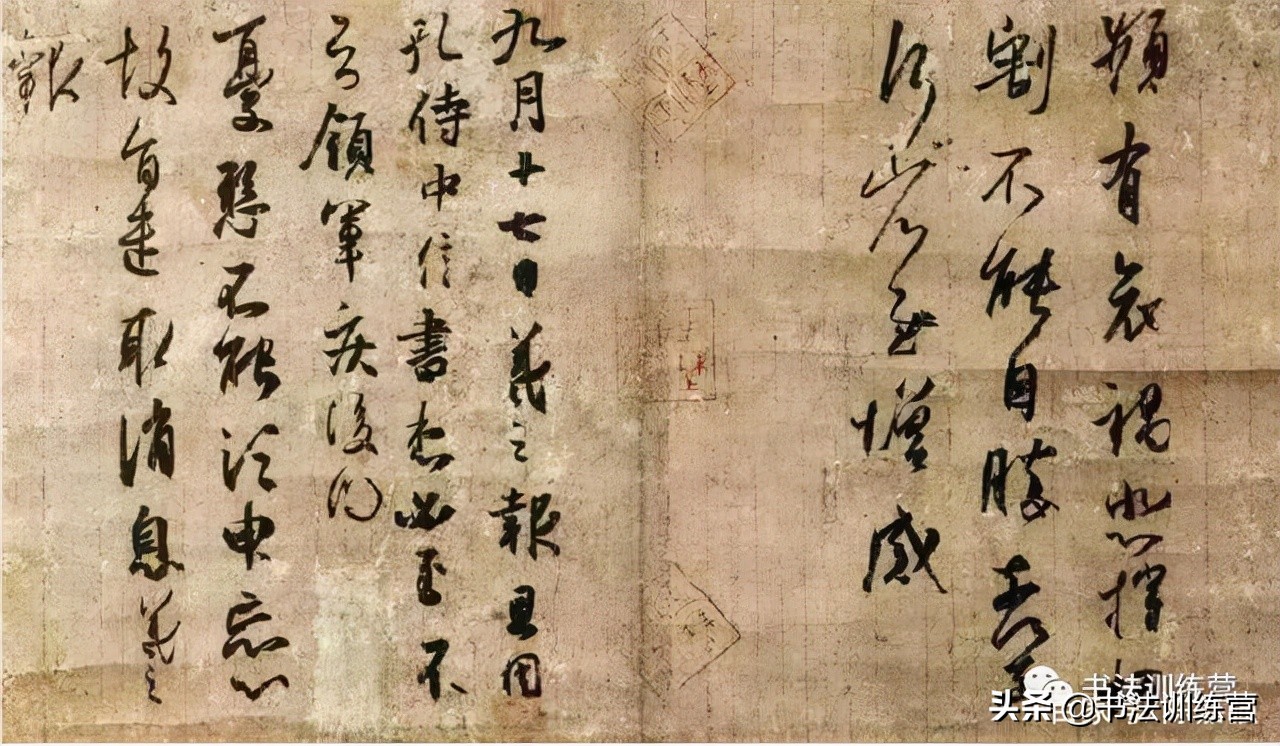 頻有哀禍悲摧切
割不能自勝奈何奈
何省慰增感
九月十七日羲之報且因
孔侍中信書想必至不
知領軍疾後問
憂懸不能須臾忘心
故旨遣取消息羲之
報
书法训练营
头条@书法训练营